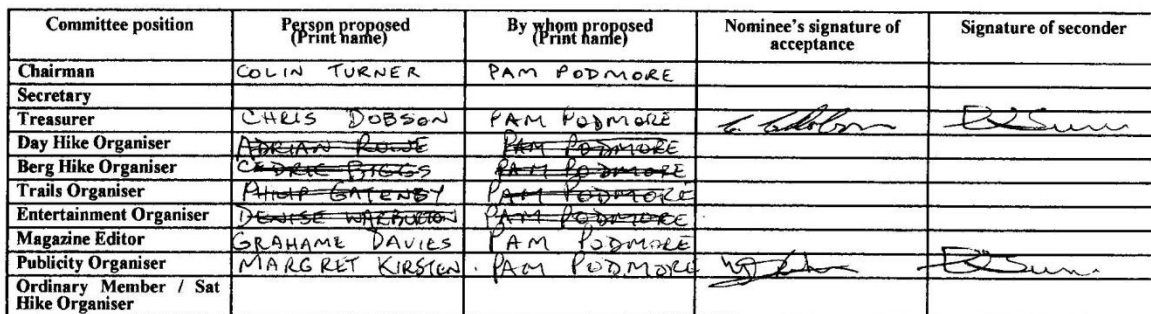 Committee position | Person proposed (Print name) | By whom proposed (Print name) | Nominee's signature of acceptance | Signature of seconder
Chairman | COLIN TURNER | PAM PODMORE
Secretary
Treasurer | CHRIS DOBSON | PAM PODMORE
Day Hike Organiser | ADRIAN ROWE | PAM PODMORE
Berg Hike Organiser | CEDRIC BIGGS | PAM PODMORE
Trails Organiser | PHILIP GATENBY | PAM PODMORE
Entertainment Organiser | DENISE WARBURTON | PAM PODMORE
Magazine Editor | GRAHAME DAVIES | PAM PODMORE
Publicity Organiser | MARGRET KIRSTEN. | PAM PODMORE
Ordinary Member / Sat Hike Organiser